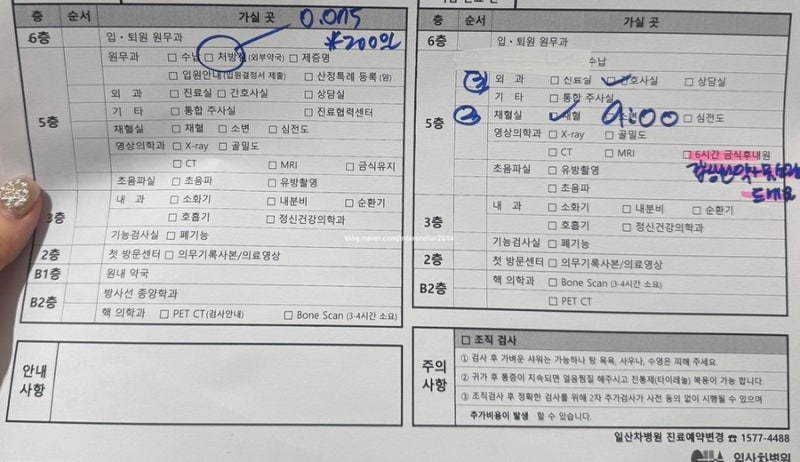 층 순서 가실 곳
0.075
*200일
6층 입·퇴원 원무과
5층
원무과 □ 수납 □ 처방전(외부약국) □ 제증명
□ 입원안내(입원결정서 제출) □ 산정특례 등록(암)
외 과 □ 진료실 □ 간호사실 □ 상담실
기 타 □ 통합 주사실 □ 진료협력센터
채혈실 □ 채혈 □ 소변 □ 심전도
영상의학과 □ X-ray □ 골밀도
□ CT □ MRI □ 금식유지
초음파실 □ 초음파 □ 유방촬영
3층
내 과 □ 소화기 □ 내분비 □ 순환기
□ 호흡기 □ 정신건강의학과
기능검사실 □ 폐기능
2층 첫 방문센터 □ 의무기록사본/의료영상
B1층 원내 약국
B2층
방사선 종양학과
핵 의학과 □ PET CT(검사안내) □ Bone Scan (3-4시간 소요)
안내
사항
층 순서 가실 곳
6층 입·퇴원 원무과
수납
5층
③ 외 과 □ 진료실 ✓ 간호사실 □ 상담실
기 타 □ 통합 주사실
② 채혈실 ✓ 채혈 □ 소변 □ 심전도
9:00
영상의학과 □ X-ray □ 골밀도
□ CT □ MRI □ 6시간 금식후내원
갑상선약
드세요
초음파실 □ 유방촬영
□ 초음파
3층
내 과 □ 소화기 □ 내분비 □ 순환기
□ 호흡기 □ 정신건강의학과
기능검사실 □ 폐기능
2층 첫 방문센터 □ 의무기록사본/의료영상
B2층
핵 의학과 □ Bone Scan (3-4시간 소요)
□ PET CT
주의
사항
□ 조직 검사
① 검사 후 가벼운 샤워는 가능하나 탕 목욕, 사우나, 수영은 피해 주세요.
② 귀가 후 통증이 지속되면 얼음찜질 해주시고 진통제(타이레놀) 복용이 가능 합니다.
③ 조직검사 후 정확한 검사를 위해 2차 추가검사가 사전 동의 없이 시행될 수 있으며
추가비용이 발생 할 수 있습니다.
일산차병원 진료예약변경 ☎ 1577-4488
CHA 일산차병원
blog.naver.com/interstellar2014